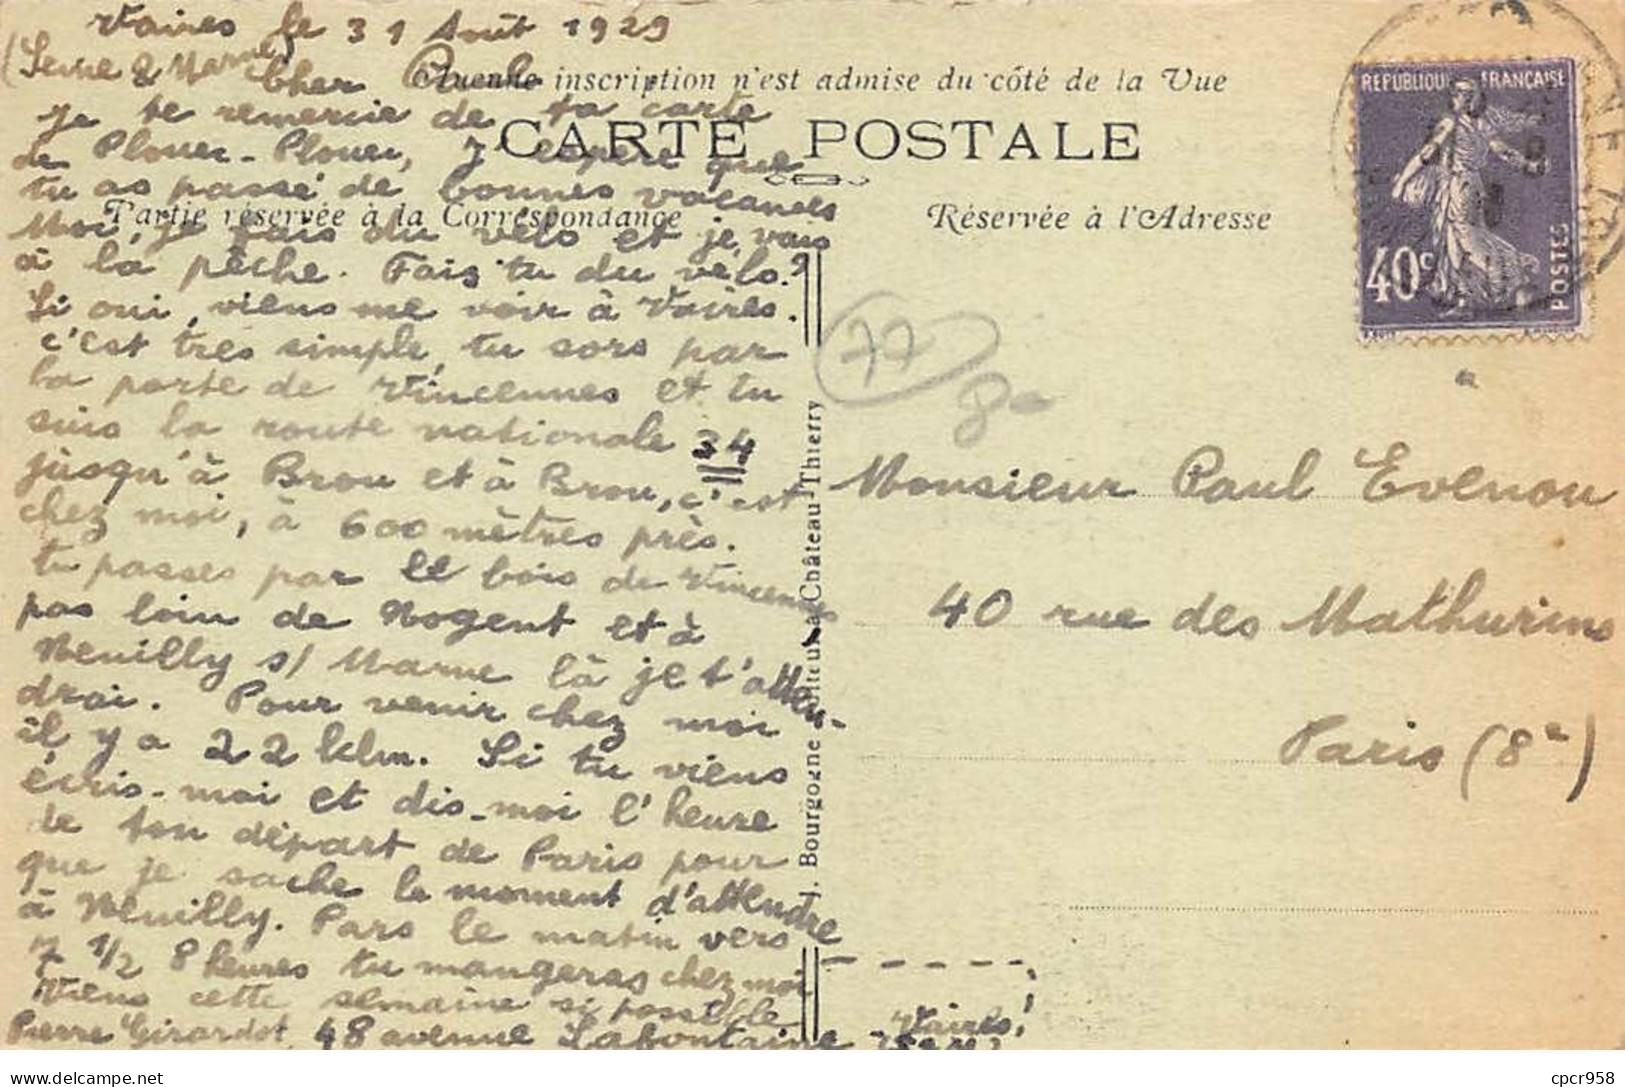 Vaires le 31 Août 1929
(Seine & Marne)
Cher Paul
Aucune inscription n'est admise du côté de la Vue
CARTE POSTALE
Partie réservée à la Correspondance
Réservée à l'Adresse
je te remercie de ta carte
de Plouer-Plouer, j'espère que
tu as passé de bonnes vacances
Moi, je fais du vélo et je vais
à la pêche. Fais tu du vélo?
Si oui, viens me voir à Vaires.
c'est très simple, tu sors par
la porte de Vincennes et tu
suis la route nationale 34
jusqu'à Brou et à Brou, c'est
chez moi, à 600 mètres près.
tu passes par le bois de Vincennes
pas loin de Nogent et à
Neuilly s/ Marne là je t'atten-
drai. Pour venir chez moi
il y a 22 klm. Si tu viens
écris-moi et dis-moi l'heure
de ton départ de Paris pour
que je sache le moment d'attendre
à Neuilly. Pars le matin vers
7 1/2 8 heures tu mangeras chez moi
Viens cette semaine si possible
Pierre Girardot 48 avenue Lafontaine Vaires
J. Bourgogne à Château-Thierry
77
REPUBLIQUE FRANÇAISE
40c
POSTES
Monsieur Paul Evenou
40 rue des Mathurins
Paris (8e)
cpcr958